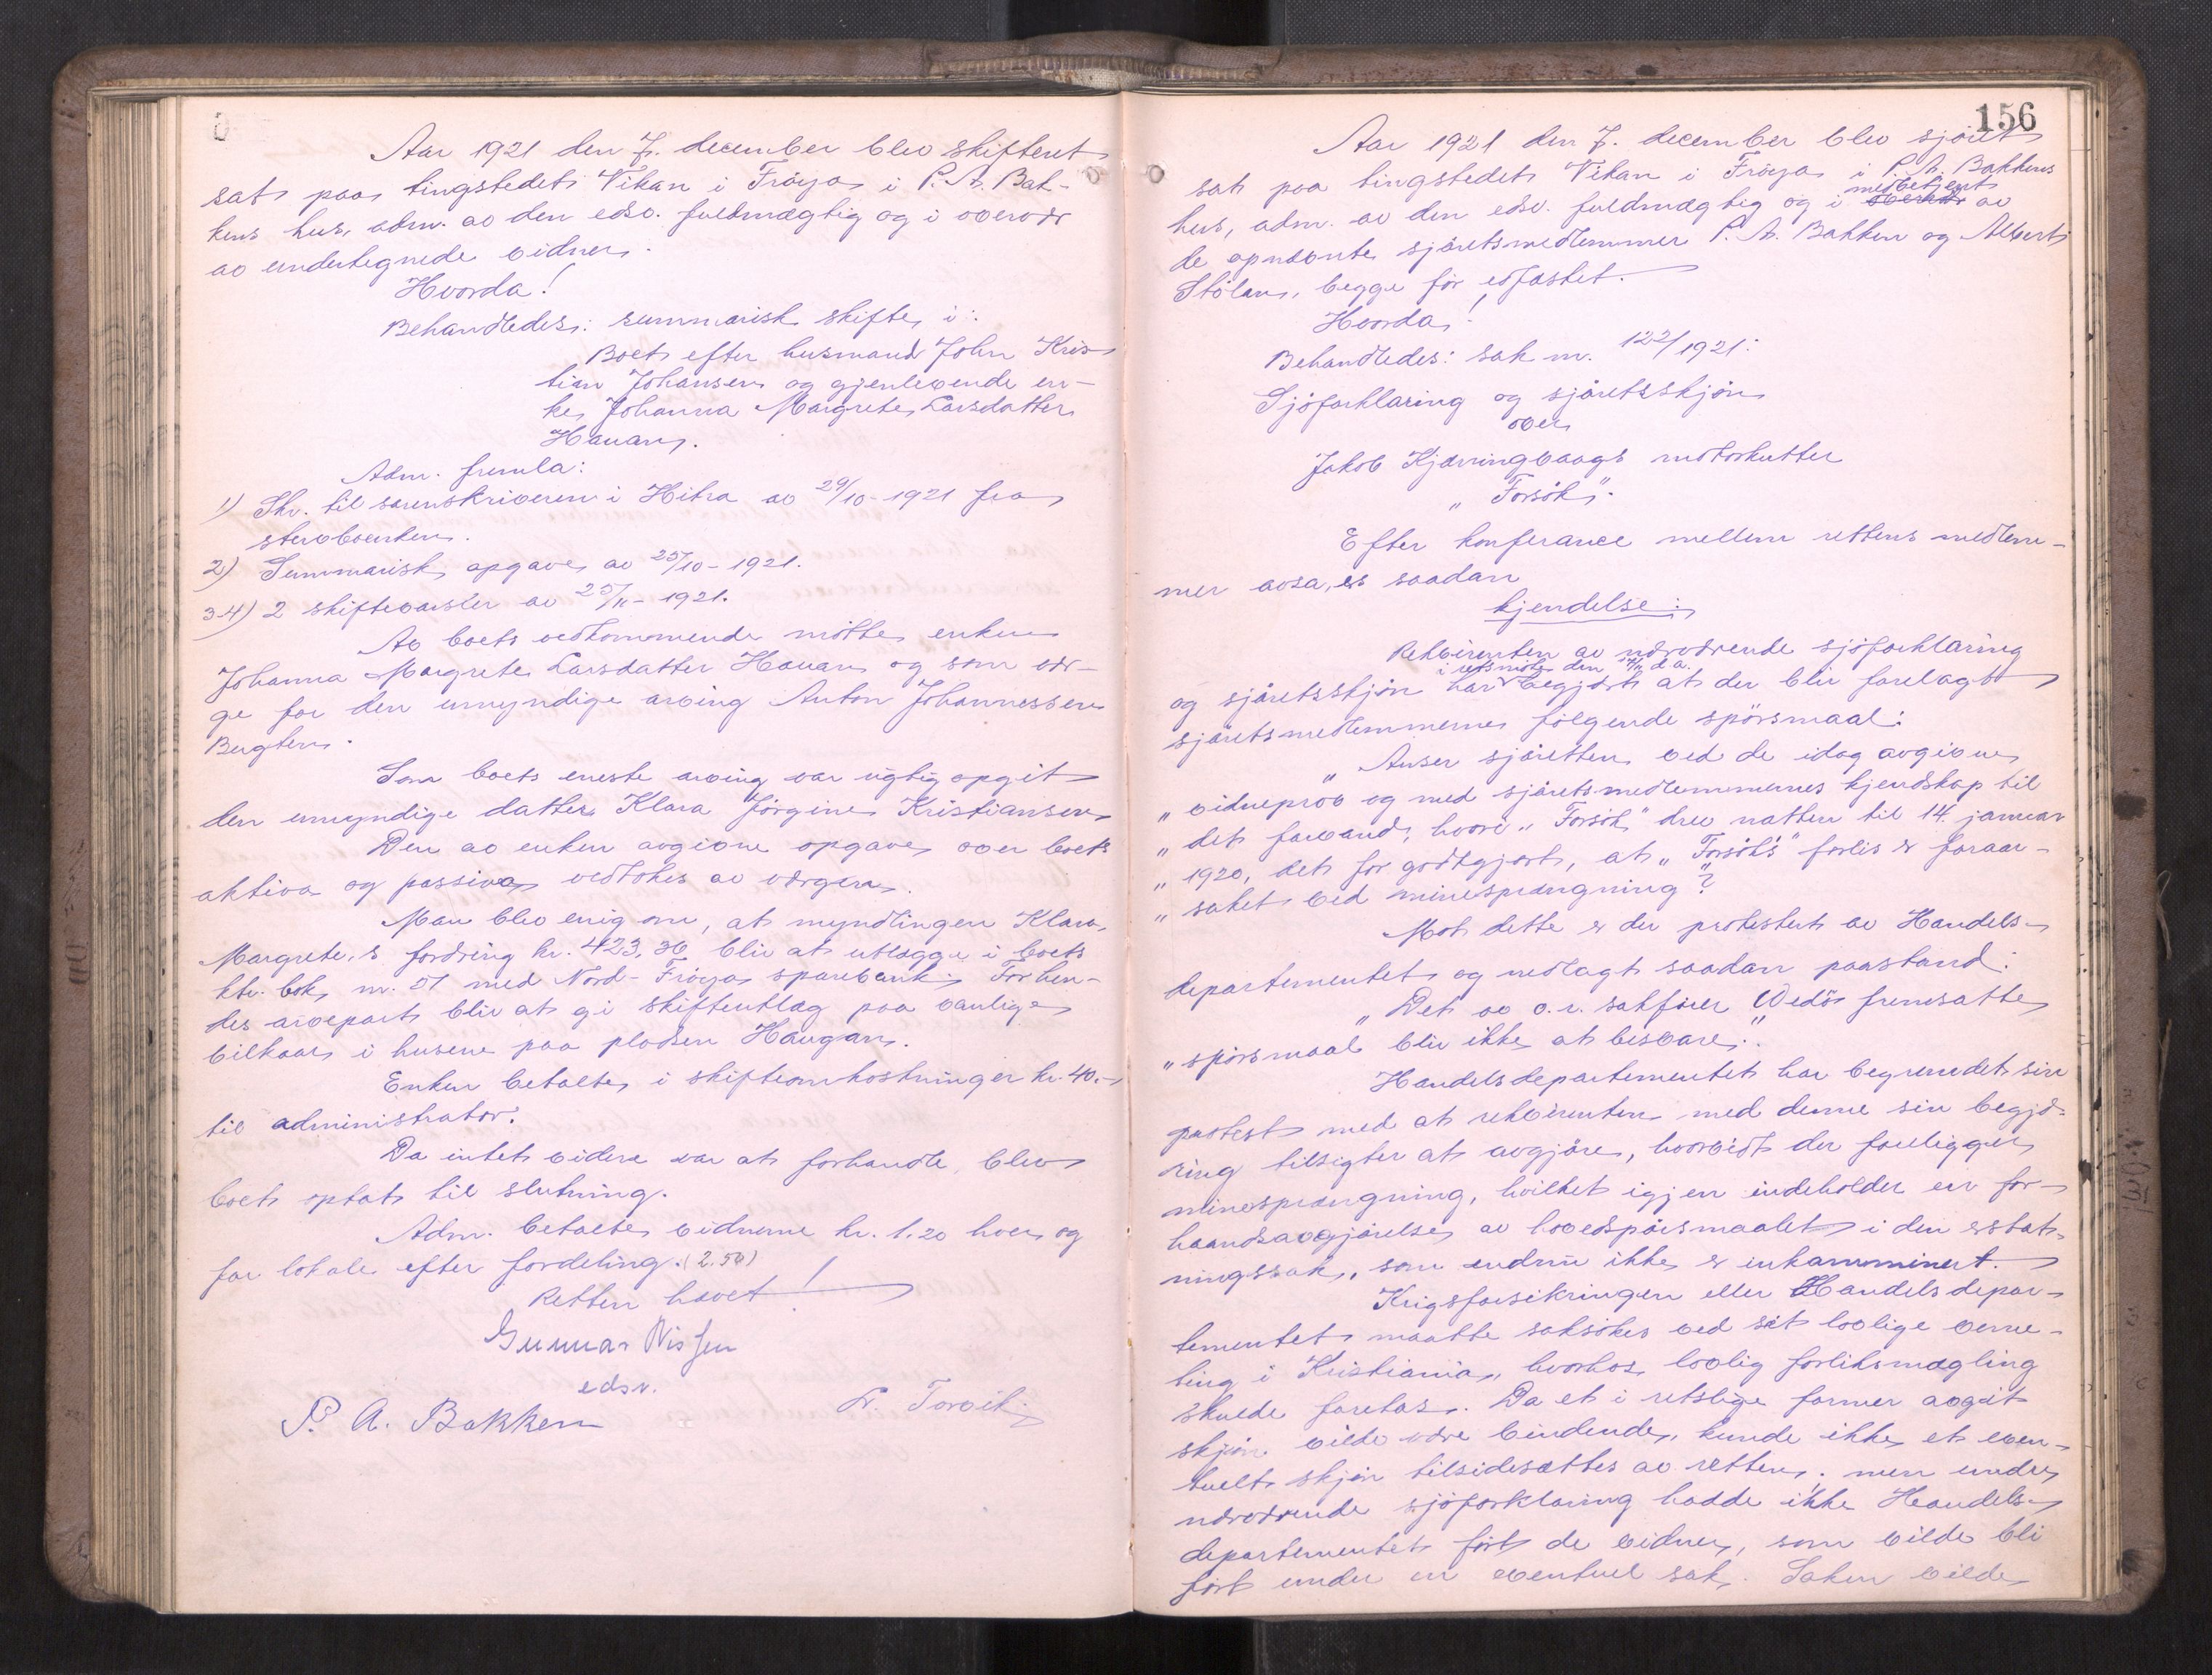 Aar 1921 den 7. december blev skifteret
sat paa tingstedet Vikan i Fröya i P. A. Bak-
kens hus, adm. av den edsv. fuldmægtig og i overvær
av undertegnede vidner.
Hvorda!
Behandledes: summarisk skifte i:
Boet efter husmand John Kris-
tian Johansen og gjenlevende en-
ke Johanna Margrete Larsdatter
Hauan.
Adm. fremla:
1) Skr. til sorenskriveren i Hitra av 29/10-1921 fra
stervboenken.
2) Summarisk opgave av 25/10-1921.
3-4) 2 skiftevarsler av 25/11-1921.
Av boets vedkommende mötte enken
Johanna Margrete Larsdatter Hauan og som vær-
ge for den umyndige arving Anton Johannessen
Som boets eneste arving var rigtig opgit
den umyndige datter Klara Jörgine Kristiansen
Den av enken avgivne opgave over boets
aktiva og passiva vedtokes av værgen.
Man blev enig om, at myndlingen Klara
Margrete's fordring kr. 423,36 blir at utlægge i boets
ktr. bok nr. 51 med Nord-Fröya sparebank. For hen-
des arvepart blir at gi skifteutlæg paa vanlige
vilkaar i husene paa pladsen Haugan.
Enken betalte i skifteomkostninger kr. 40.-
til administrator.
Da intet videre var at forhandle, blev
boet optat til slutning.
Adm. betalte vidnerne kr. 1.20 hver og
for lokale efter fordeling. (2.50)
Retten hævet!
Gunnar Nissen
edsv.
P. A. Bakken
Torvik
156
Aar 1921 den 7. december blev sjöret
sat paa tingstedet Vikan i Fröya i P. A. Bakkens
hus, adm. av den edsv. fuldmægtig og i medbetjent av
de opnævnte sjöretsmedlemmer P. A. Bakken og Albert
Stölan, begge för edfæstet.
Hvorda!
Behandledes: sak nr. 122/1921:
Sjöforklaring og sjöretsskjön
over
Jakob Kjærringvaags motorkutter
"Forsök".
Efter konferance mellem rettens medlem-
mer avsa, es saadan
kjendelse:
Rekvirenten av nærværende sjöforklaring
i retsmöte den d. a.
og sjöretsskjön har begjært at der blir forelagt
sjöretsmedlemmerne fölgende spörsmaal:
"Anser sjöretten ved de idag avgivne
"vidneprov og med sjöretsmedlemmernes kjendskap til
"det farvand, hvori "Forsök" drev natten til 14. januar
"1920, det for godtgjort, at "Forsök's" forlis er foraar-
"saket ved minesprængning?"
Mot dette er der protestert av Handels-
departementet og nedlagt saadan paastand:
"Det av o.r. sakförer Wedö fremsatte
"spörsmaal blir ikke at besvare."
Handelsdepartementet har begrundet sin
protest med at rekvirenten med denne sin begjæ-
ring tilsigter at avgjöre, hvorvidt der foreligger
minesprængning, hvilket igjen indeholder en for-
haandsavgjörelse av hovedspörsmaalet i den erstat-
ningssak, som endnu ikke er inkamminert.
Krigsforsikringen eller Handelsdepar-
tementet maatte saksökes ved sit lovlige verne-
ting i Kristiania, hvorhos lovlig forliksmægling
skulde foretas. Da et i retslige former avgit
skjön vilde være bindende, kunde ikke et even-
tuelt skjön tilsidesættes av retten, men under
nærværende sjöforklaring hadde ikke Handels-
departementet fört de vidner, som vilde bli
fört under en eventuel sak. Saken vilde